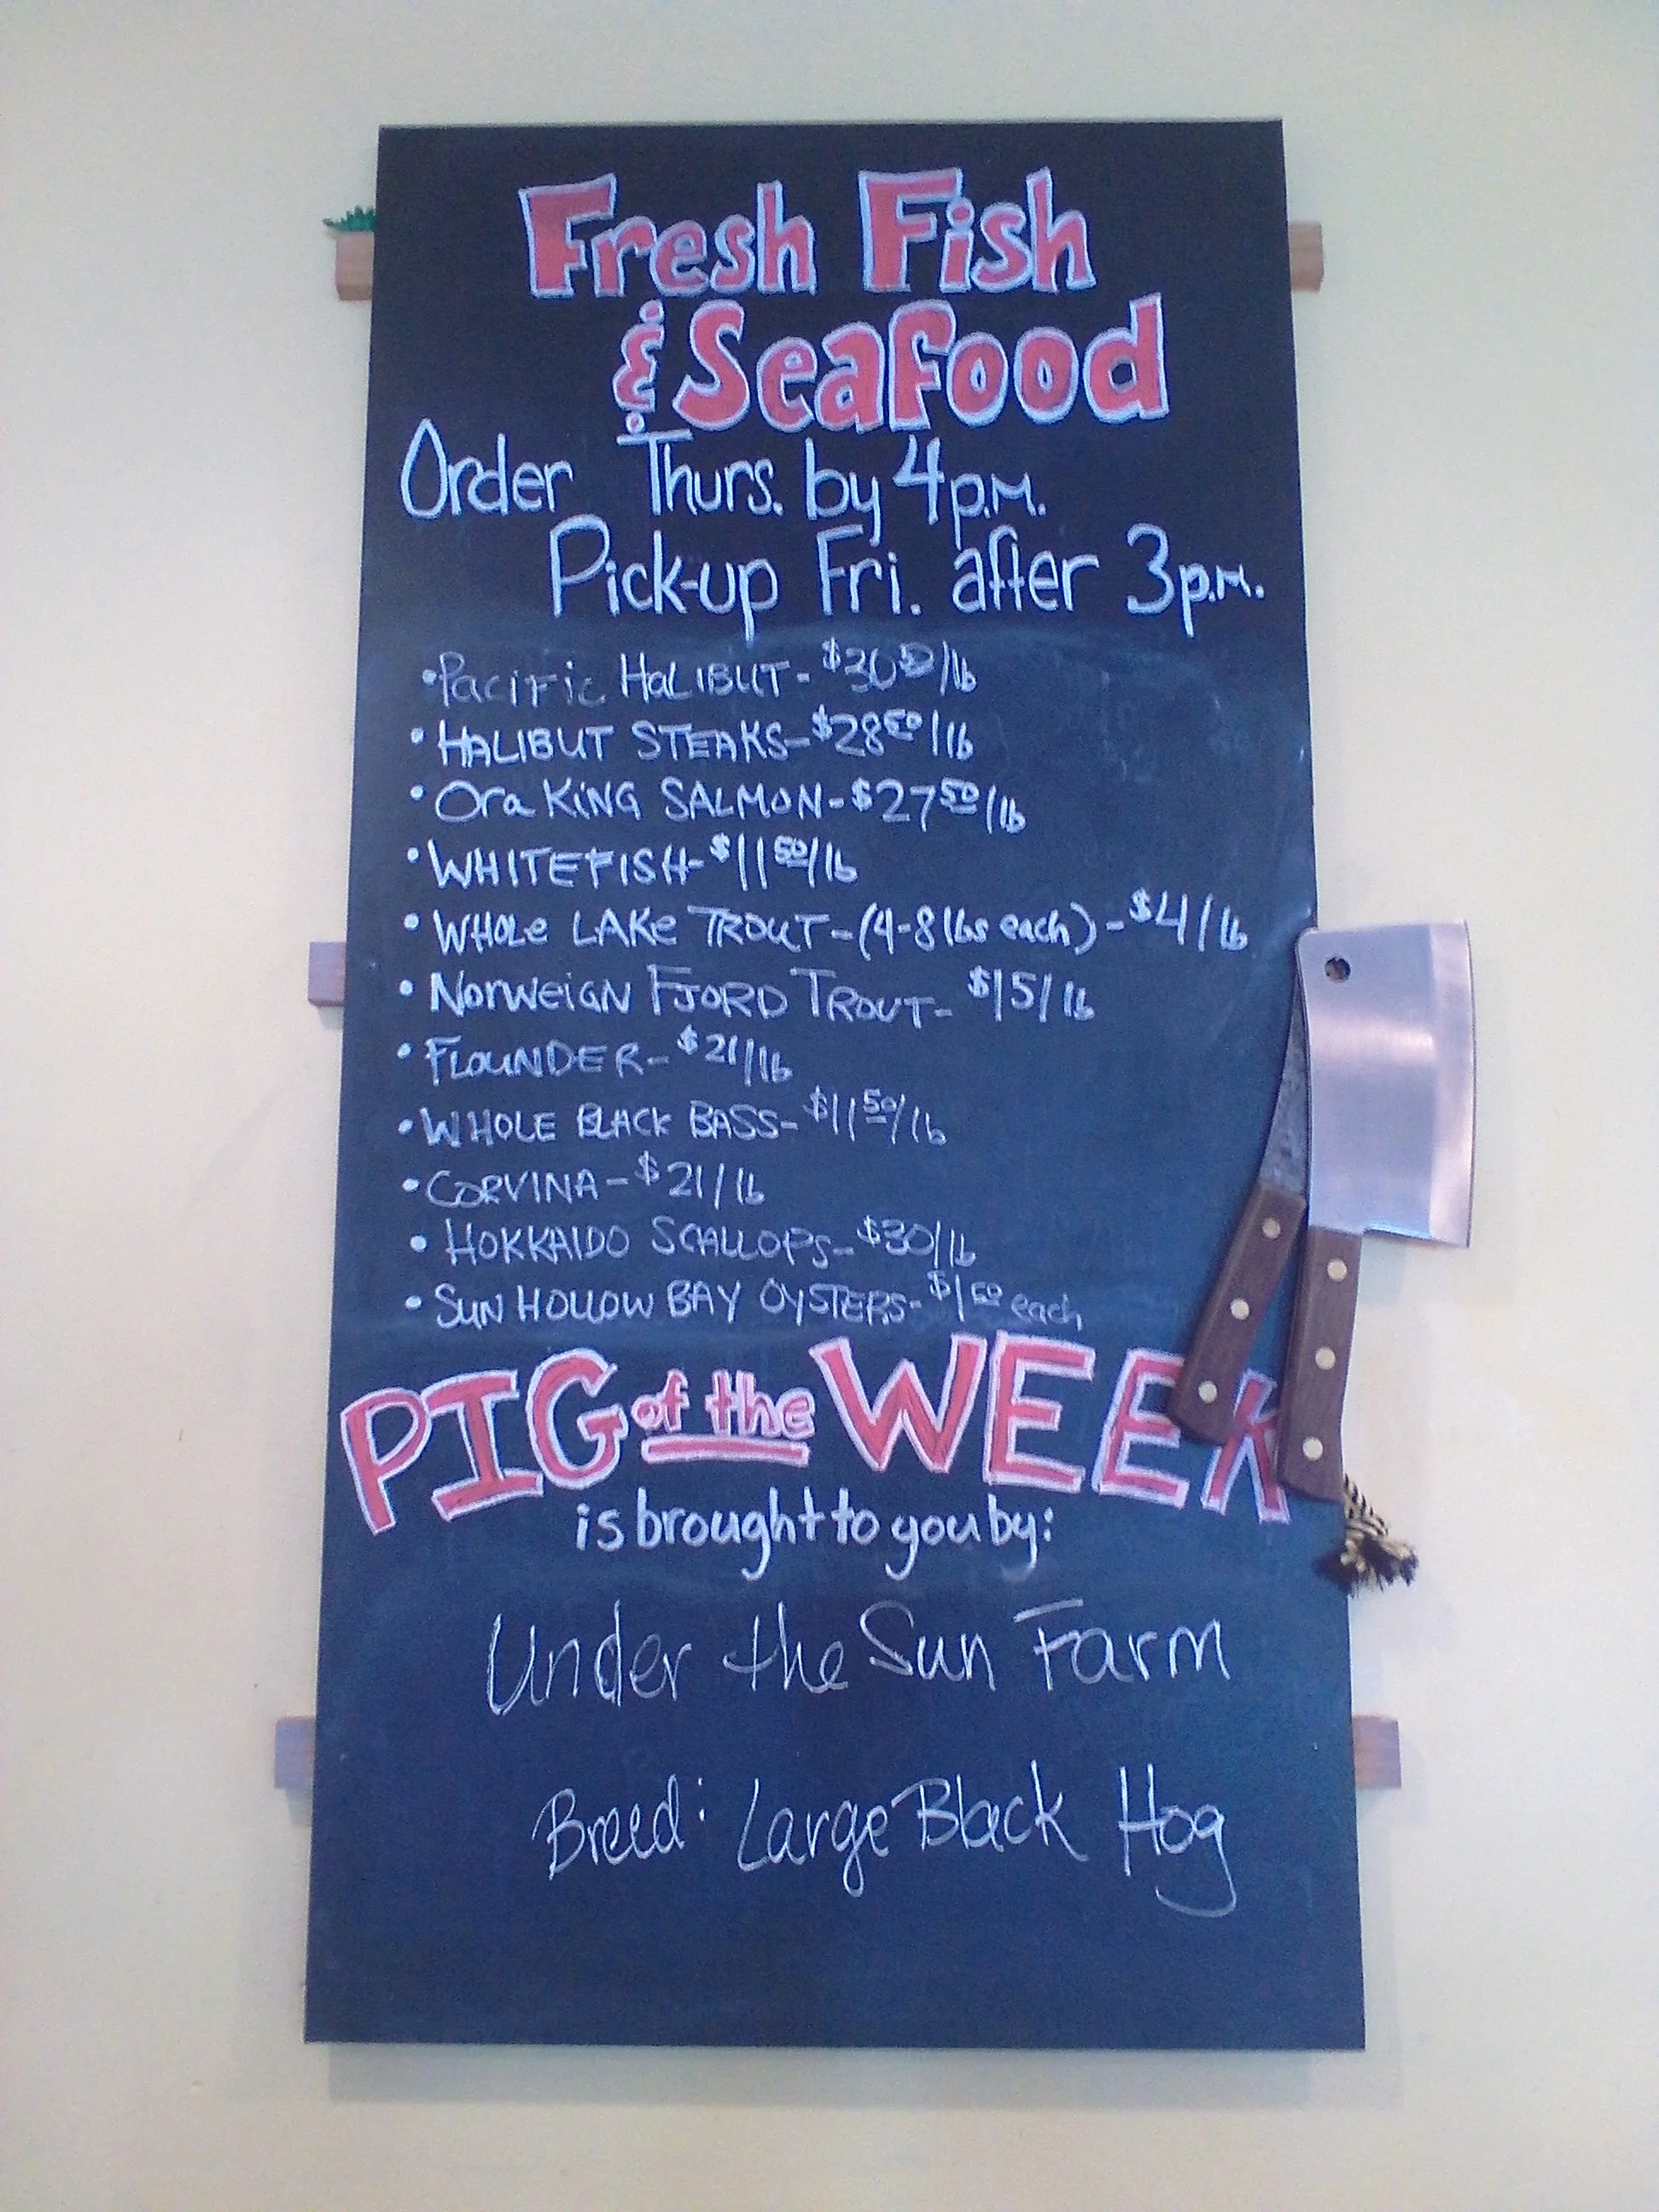 Fresh Fish
& Seafood
Order Thurs. by 4p.m.
Pick-up Fri. after 3p.m.
• Pacific HALIBUT - $30 50/lb
• HALIBUT STEAKS - $28 50/lb
• Ora KING SALMON - $27 50/lb
• WHITEFISH - $11 50/lb
• WHOLe LAKe TROUT - (4-8 lbs each) - $4/lb
• NORWeiGN FJORD TROUT - $15/lb
• FLOUNDER - $21/lb
• WHOLE BLACK BASS - $11 50/lb
• CORVINA - $21/lb
• HOKKAIDO SCALLOPS - $30/lb
• SUN HOLLOW BAY OYSTERS - $1 50 each
PIG of the WEEK
is brought to you by:
Under the Sun Farm
Breed: Large Black Hog